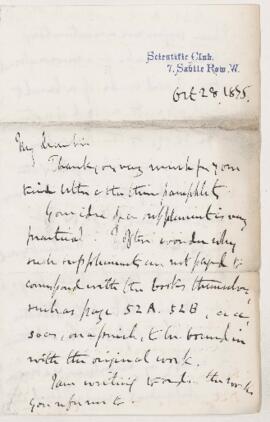 Scientific Club,
7, Savile Row, W.
Oct 28. 1885.
My dear Sir
Thank you very much for your
kind letter & the three pamphlets.
Your idea of a supplement is very
practical. I often wonder why
such supplements are not paged to
correspond with the books themselves,
such as page 52A. 52B,
so as, to be bound in
with the original work.
I am writing to order the work
you refer me to.